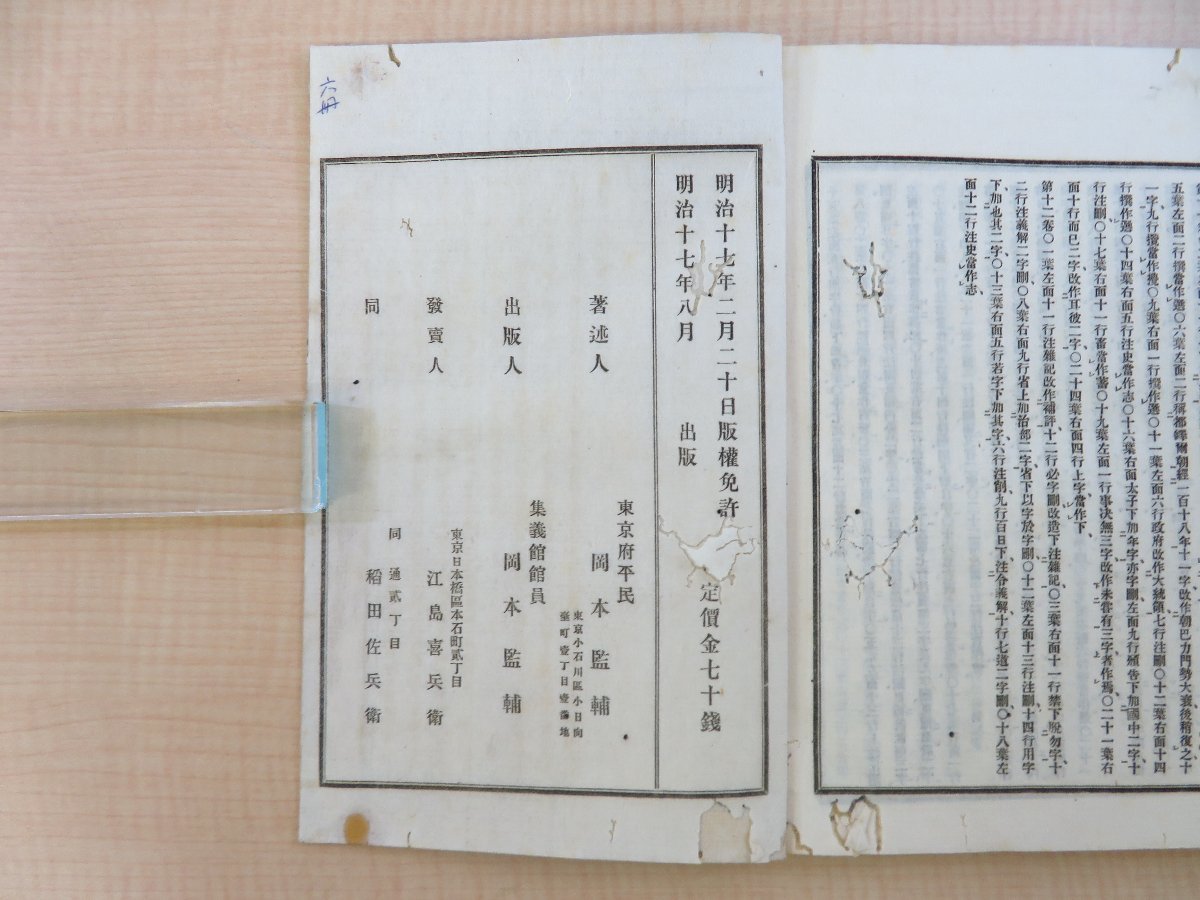 五葉左面二行撰當作遜〇六葉左面二行稱都鐸爾朝經一百十八年十一字改作朝巴力門勢大衰後稍復之十
一字九行當作〇九葉右面一行撰作遜〇十一葉左面六行政府改作大統領七行注刪〇十二葉右面十四
行撰作遜〇十四葉右面五行注史當作志〇十六葉右面太子下加年字亦字刪左面九行告下加國中二字十
行注刪〇十七葉右面十一行畜當作蓄〇十九葉左面一行事決無三字改作未嘗有三字者作焉〇二十一葉右
面十行而已二字改作耳彼二字〇二十四葉右面四行上字當作下
第十二卷〇一葉左面十一行注雜記改作補評十二行必字刪改造下注雜記〇三葉右面十一行禁下脫勿字十
二行注義解二字刪〇八葉右面九行省上加治部二字省下以字於字刪〇十二葉左面十三行注刪十四行用字
下加也其二字〇十三葉右面五行若字下加其字六行注削九行百日下注令義解十行七道二字刪〇十八葉左
面十二行注史當作志
明治十七年二月二十日版權免許
定價金七十錢
明治十七年八月
出版
著述人
東京府平民
岡本監輔
東京小石川區小日向
臺町壹丁目壹番地
出版人
集義館館員
岡本監輔
發賣人
東京日本橋區本石町貳丁目
江島喜兵衛
同
同通貳丁目
稻田佐兵衛
六冊